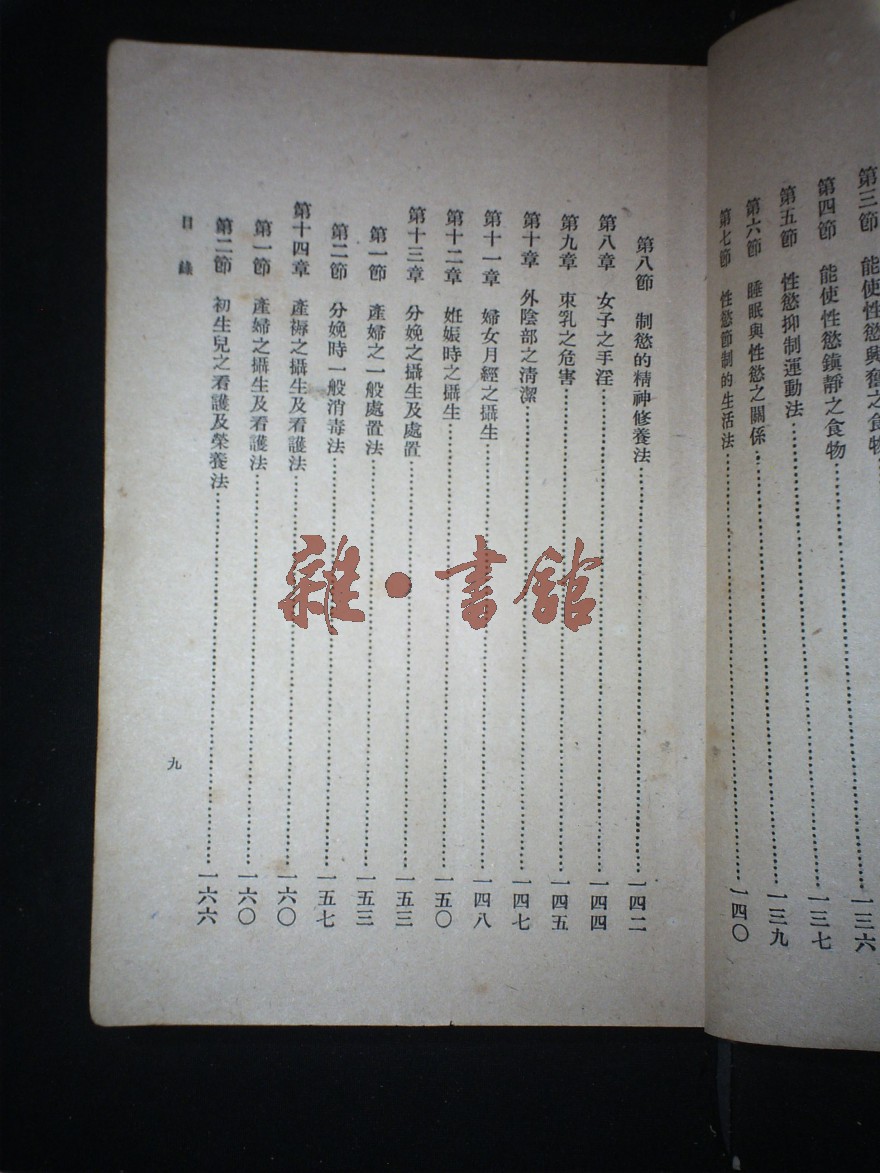 第三節　能使性慾興奮之食物……一三六
第四節　能使性慾鎭靜之食物……一三七
第五節　性慾抑制運動法……一三九
第六節　睡眠與性慾之關係
第七節　性慾節制的生活法……一四〇
第八節　制慾的精神修養法……一四二
第八章　女子之手淫……一四四
第九章　束乳之危害……一四五
第十章　外陰部之清潔……一四七
第十一章　婦女月經之攝生……一四八
第十二章　姙娠時之攝生……一五〇
第十三章　分娩之攝生及處置……一五三
第一節　產婦之一般處置法……一五三
第二節　分娩時一般消毒法……一五七
第十四章　產褥之攝生及看護法……一六〇
第一節　產婦之攝生及看護法……一六〇
第二節　初生兒之看護及榮養法……一六六
目錄
九
雜·書館